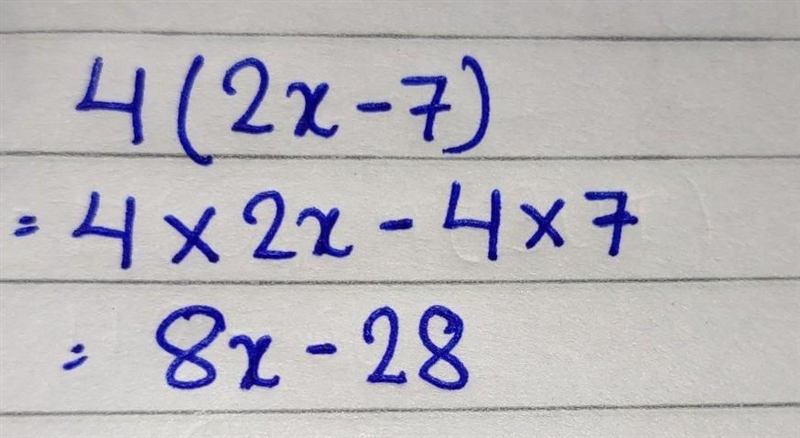 4(2x-7)
= 4 × 2x - 4 × 7
= 8x - 28